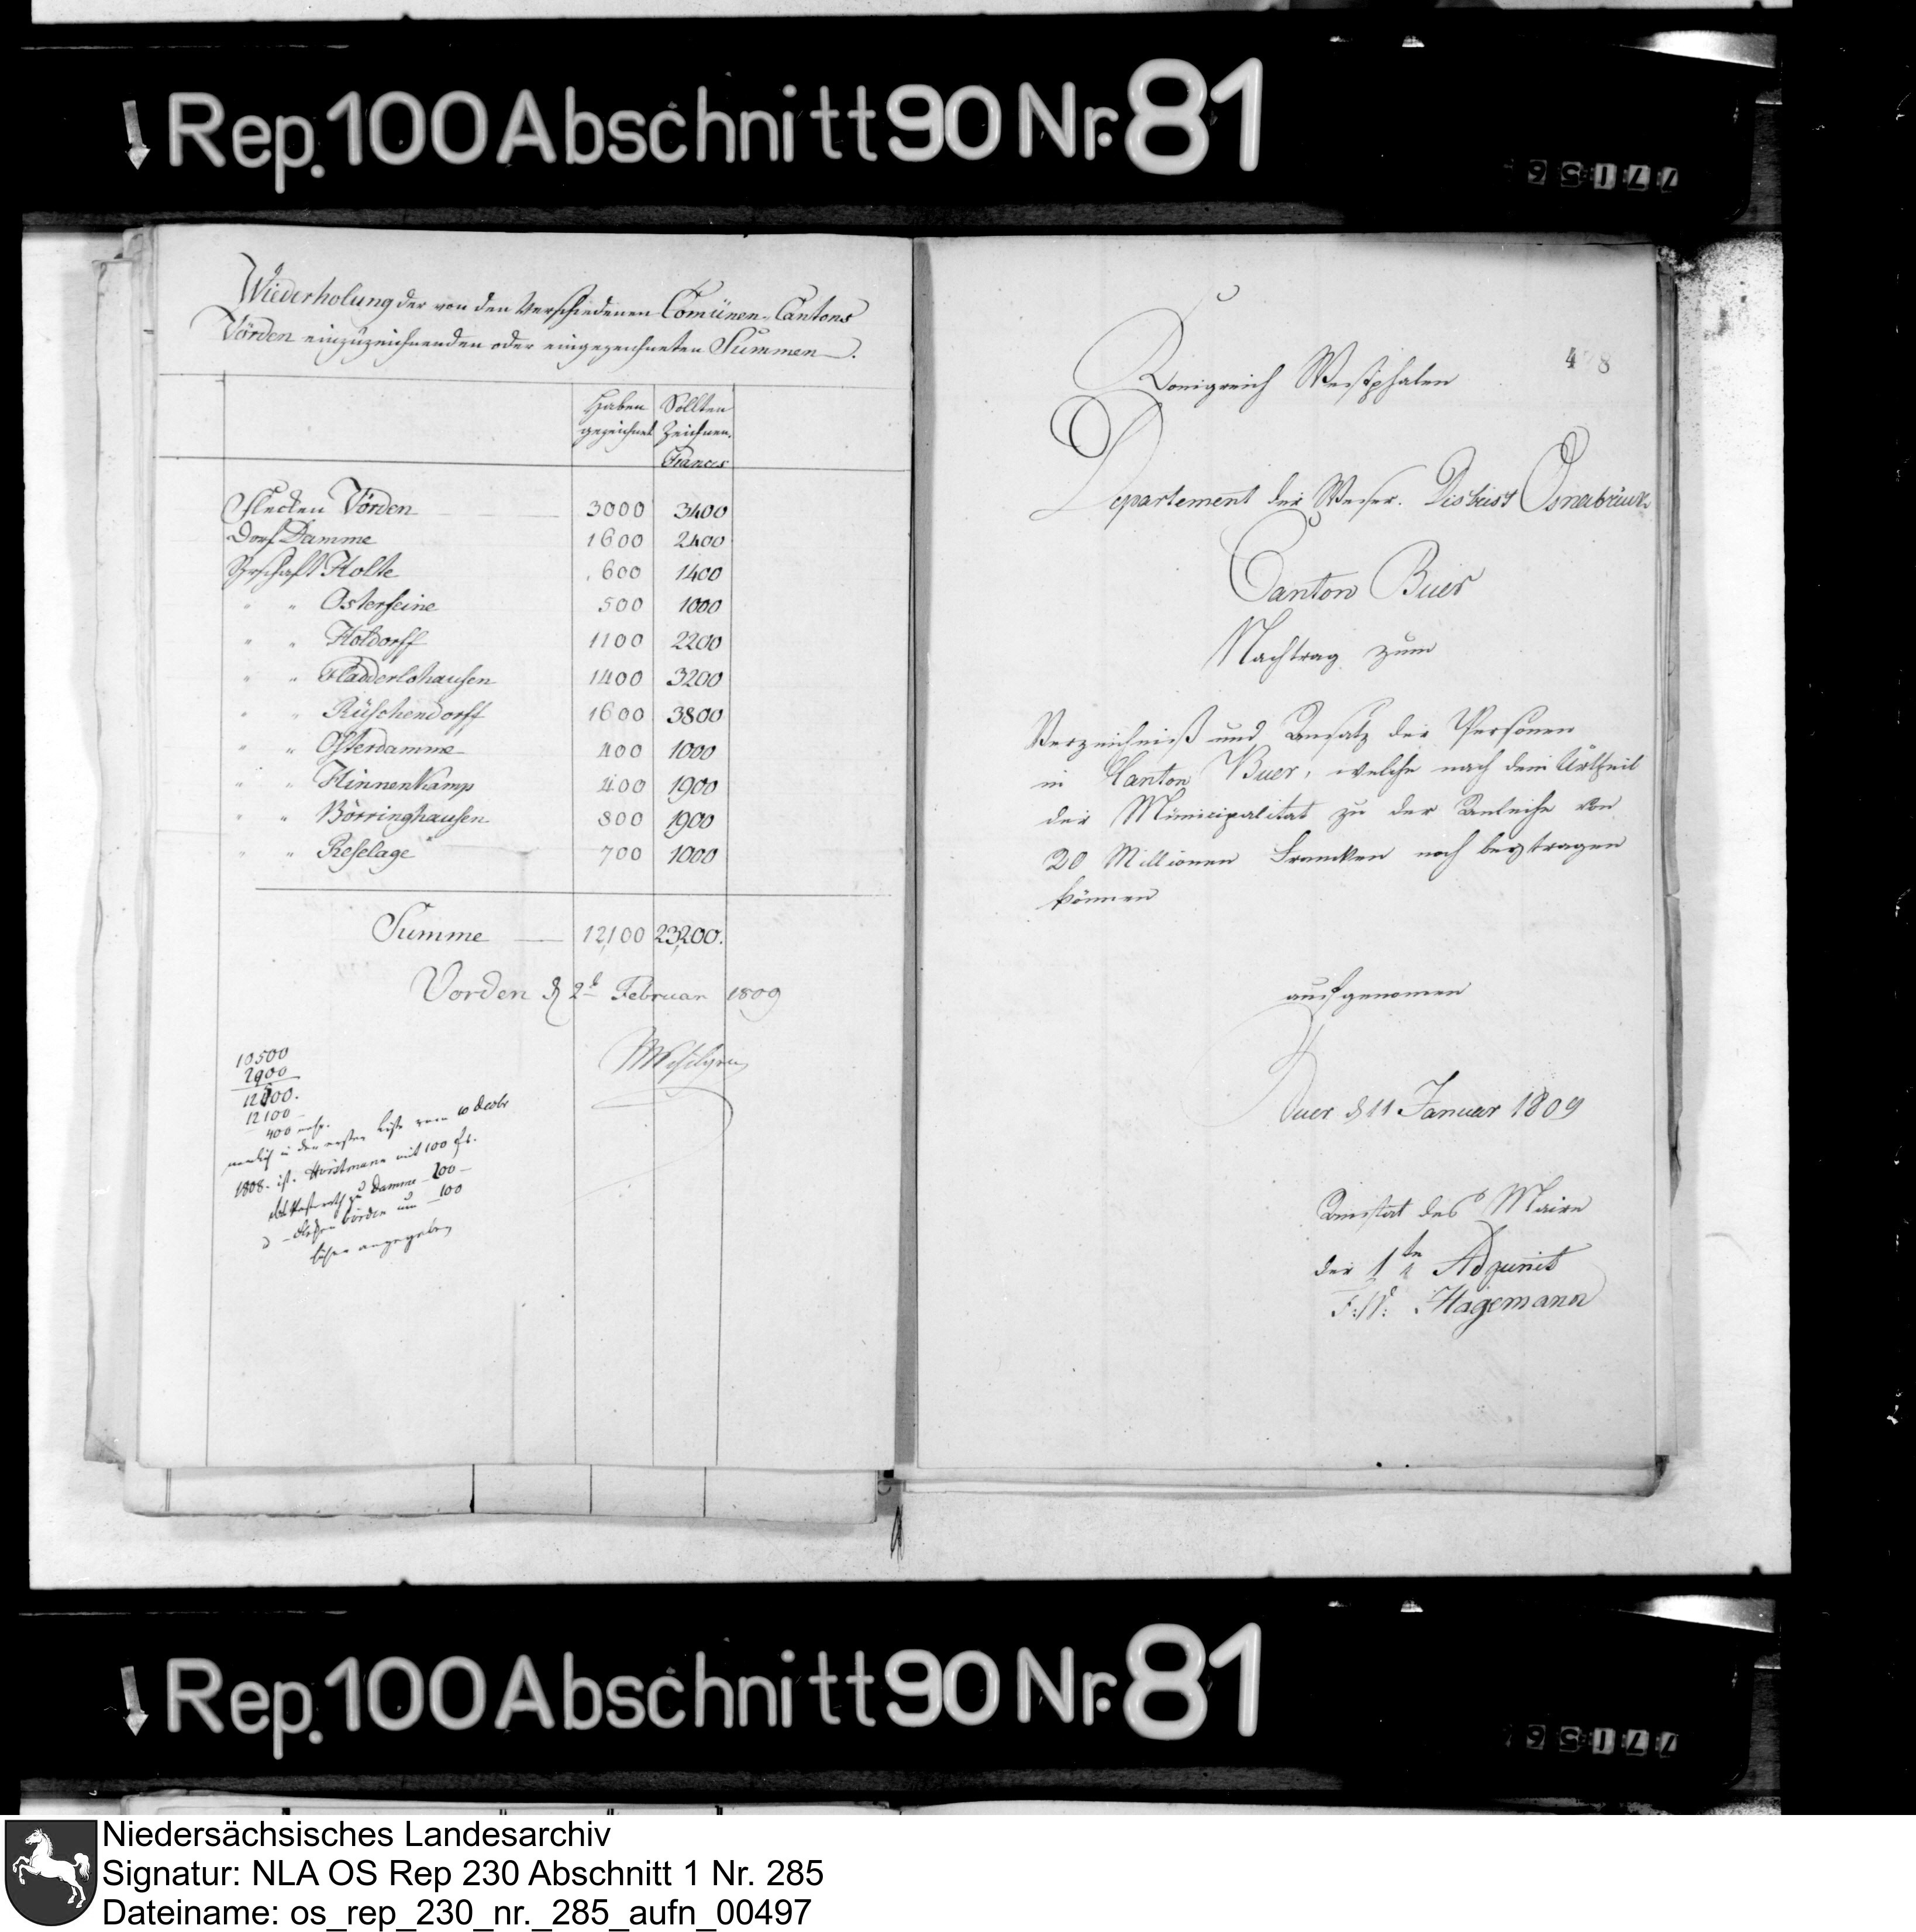 Rep. 100 Abschnitt 90 Nr. 81
Wiederholung der von den Verschiedenen Comünen Cantons
Vörden einzüzeichnenden oder eingezeichneten Summen.
Haben Sollten
gezeichnet Zeichnen.
Francs
Flecken Vörden 3000 3400
Dorf Damme 1600 2400
Brschaft Holte 600 1400
" " Osterfeine 500 1000
" " Holdorff 1100 2200
" " Fladderlohausen 1400 3200
" " Rüschendorff 1600 3800
" " Osterdamme 400 1000
" " Hinnenkamp 400 1900
" " Börringhausen 800 1900
" " Reselage 700 1000
Summe 12,100 23,200.
Vörden d 2t Februar 1809
10500
2000
12100
400
in der ersten Liste vom 10 Decbr
1808. ist. Horstmann mit 100 fr.
zu Damme 200
Vörden um 100
angegeben
478
Königreich Westphalen
Departement der Weser. District Osnabrück
Canton Buer
Nachtrag zum
Verzeichniß und Ansatz der Personen
in Canton Buer, welche nach dem Urtheil
der Municipalitat zu der Anleihe von
20 Millionen Francken noch beytragen
können
aufgenomen
Buer d 11 Januar 1809
Anstat des Maire
der 1te Adjunct
F: W: Hagemann
Rep. 100 Abschnitt 90 Nr. 81
Niedersächsisches Landesarchiv
Signatur: NLA OS Rep 230 Abschnitt 1 Nr. 285
Dateiname: os_rep_230_nr._285_aufn_00497